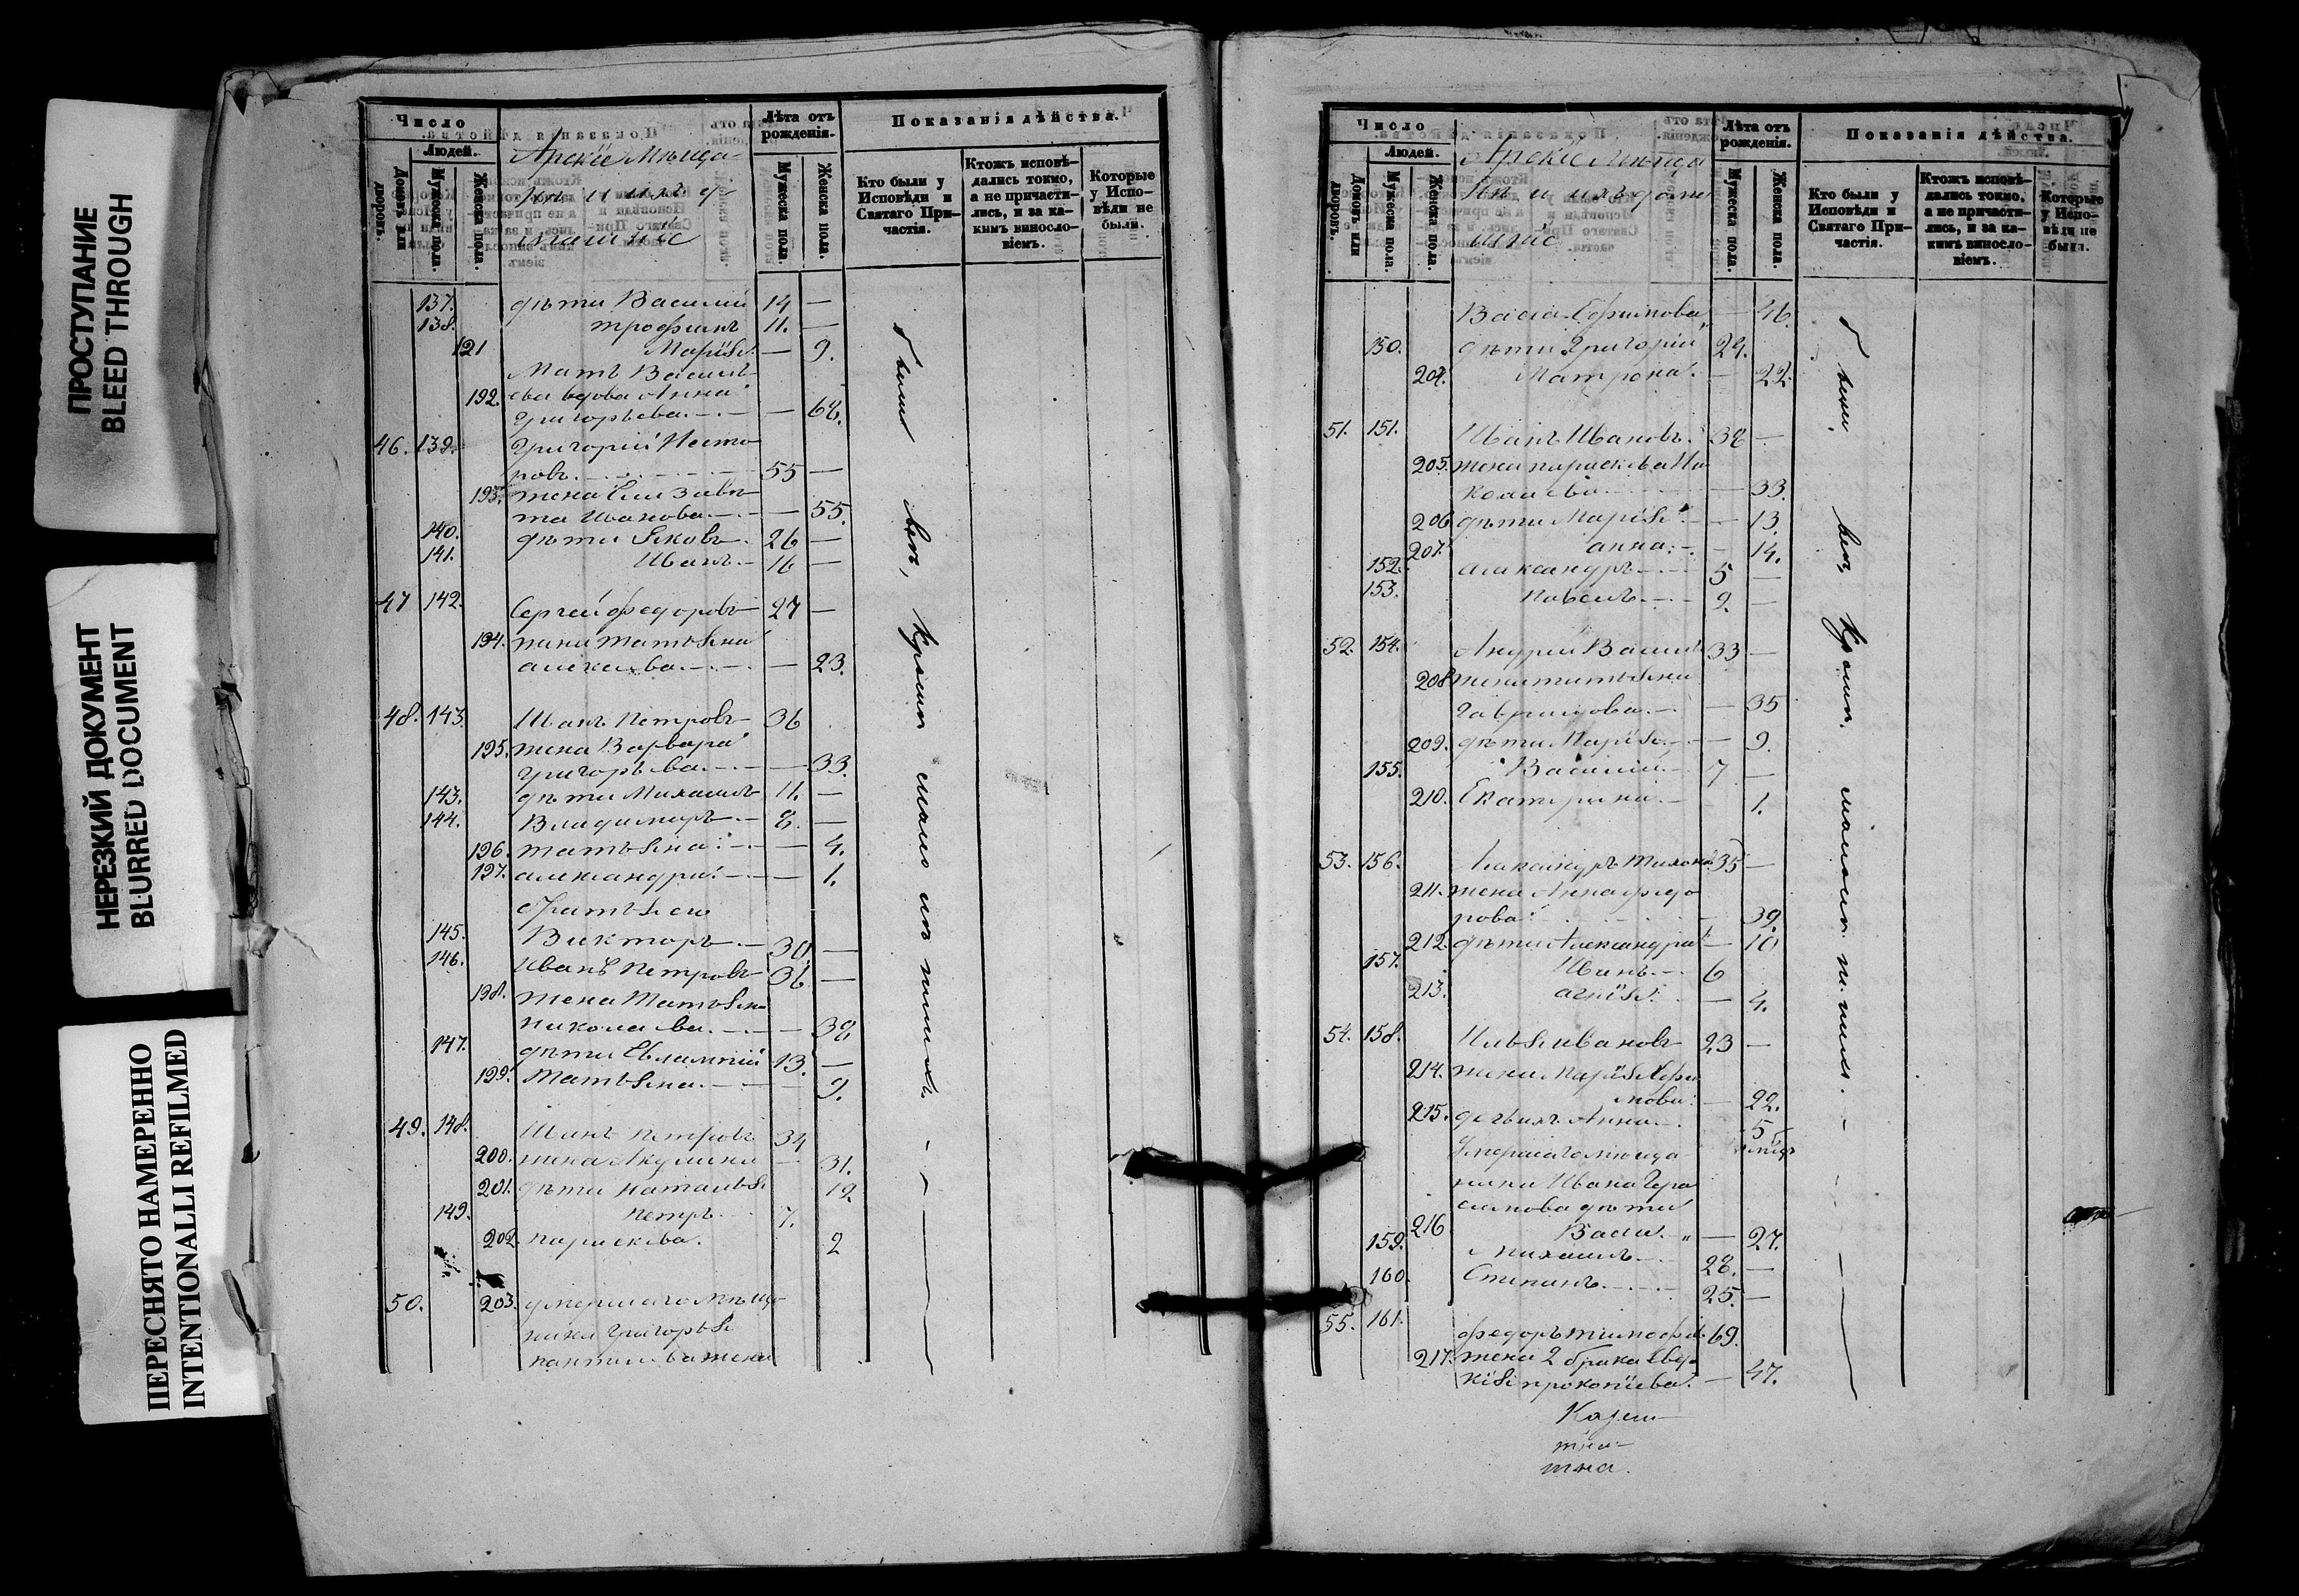 ПРОСТУПАНИЕ
BLEED THROUGH
НЕРЕЗКИЙ ДОКУМЕНТ
BLURRED DOCUMENT
ПЕРЕСНЯТО НАМЕРЕННО
INTENTIONALLI REFILMED
Число
Людей.
Домовъ или дворовъ.
Мужеска пола.
Женска пола.
Арскіе мѣща-
не и ихъ д
машніе
Лѣта отъ рожденія.
Мужеска пола.
Женска пола.
Показанія дѣйства.
Кто были у Исповѣди и Святаго При-частія.
Ктожъ исповѣ-дались токмо, а не причасти-лись, и за ка-кимъ виносло-віемъ.
Которые у Испо-вѣди не были.
137. дѣти Василій 14 —
138. Трофимъ 11. —
121 Марія — 9.
Мать Василь-
192. ева вдова Анна
Григорьева — 68.
46. 139. Григорій Несто-
ровъ 55 —
193. жена Елизавѣ-
та Иванова — 55.
140. дѣти Яковъ 26 —
141. Иванъ 16 —
47 142. Сергей Федоровъ 27 —
194. жена Татьяна
Алексѣева — 23.
48. 143. Иванъ Петровъ 36
195. жена Варвара
Григорьева — 33.
143. дѣти Михаилъ 11. —
144. Владимиръ 8. —
196. Татьяна — 4.
197. Александра — 1.
братья его
145. Викторъ 30 —
146. Иванъ Петровъ 36 —
198. жена Татьяна
Николаева — 38
147. дѣти Евлампій 13. —
199. Татьяна — 9.
49. 148. Иванъ Петровъ 34
200. жена Акулина — 31.
201. дѣти Наталья 12
149. Петръ 7.
202. Параскева. 2
50. 203. умершаго мѣща-
нина Григорья
Пантилѣва жена
были всѣ, кромѣ малолѣтнихъ
Число
Людей.
Домовъ или дворовъ.
Мужеска пола.
Женска пола.
Арскіе мѣща
не и ихъ дома
шніе
Лѣта отъ рожденія.
Мужеска пола.
Женска пола.
Показанія дѣйства.
Кто были у Исповѣди и Святаго При-частія.
Ктожъ исповѣ-дались токмо, а не причасти-лись, и за ка-кимъ виносло-віемъ.
Которые у Испо-вѣди не были.
Васса Ефимова — 46.
150. дѣти Григорій 24.
204. Матрона — 22.
51. 151. Иванъ Ивановъ 38 —
205. жена Параскева Ни
колаева — 33.
206 дѣти Марія — 13
207. Анна — 14.
152. Александръ 5 —
153. Павелъ 9. —
52. 154. Андрей Васил 33 —
208 жена Татьяна
Гаврилова — 35
209. дѣти Марія — 9.
155. Василій 7 —
210. Екатерина 1.
53. 156. Александръ Тихонов 35 —
211. жена Анна Федо
рова 39.
212. дѣти Александра — 10
157. Иванъ 6
213. Агнія — 4.
54. 158. Илья Ивановъ 23 —
214. жена Марія Ефи
мова — 22.
215. дочь ихъ Анна 5
умершаго мѣща
нина Ивана Гера
симова дѣти
216 Васса — 27.
159. Михаилъ 28. —
160. Степанъ 25. —
55. 161. Федоръ Тимофѣ 69.
217. жена 2 брака Евдо
кія Прокопіева — 47.
были всѣ, кромѣ малолѣтн.